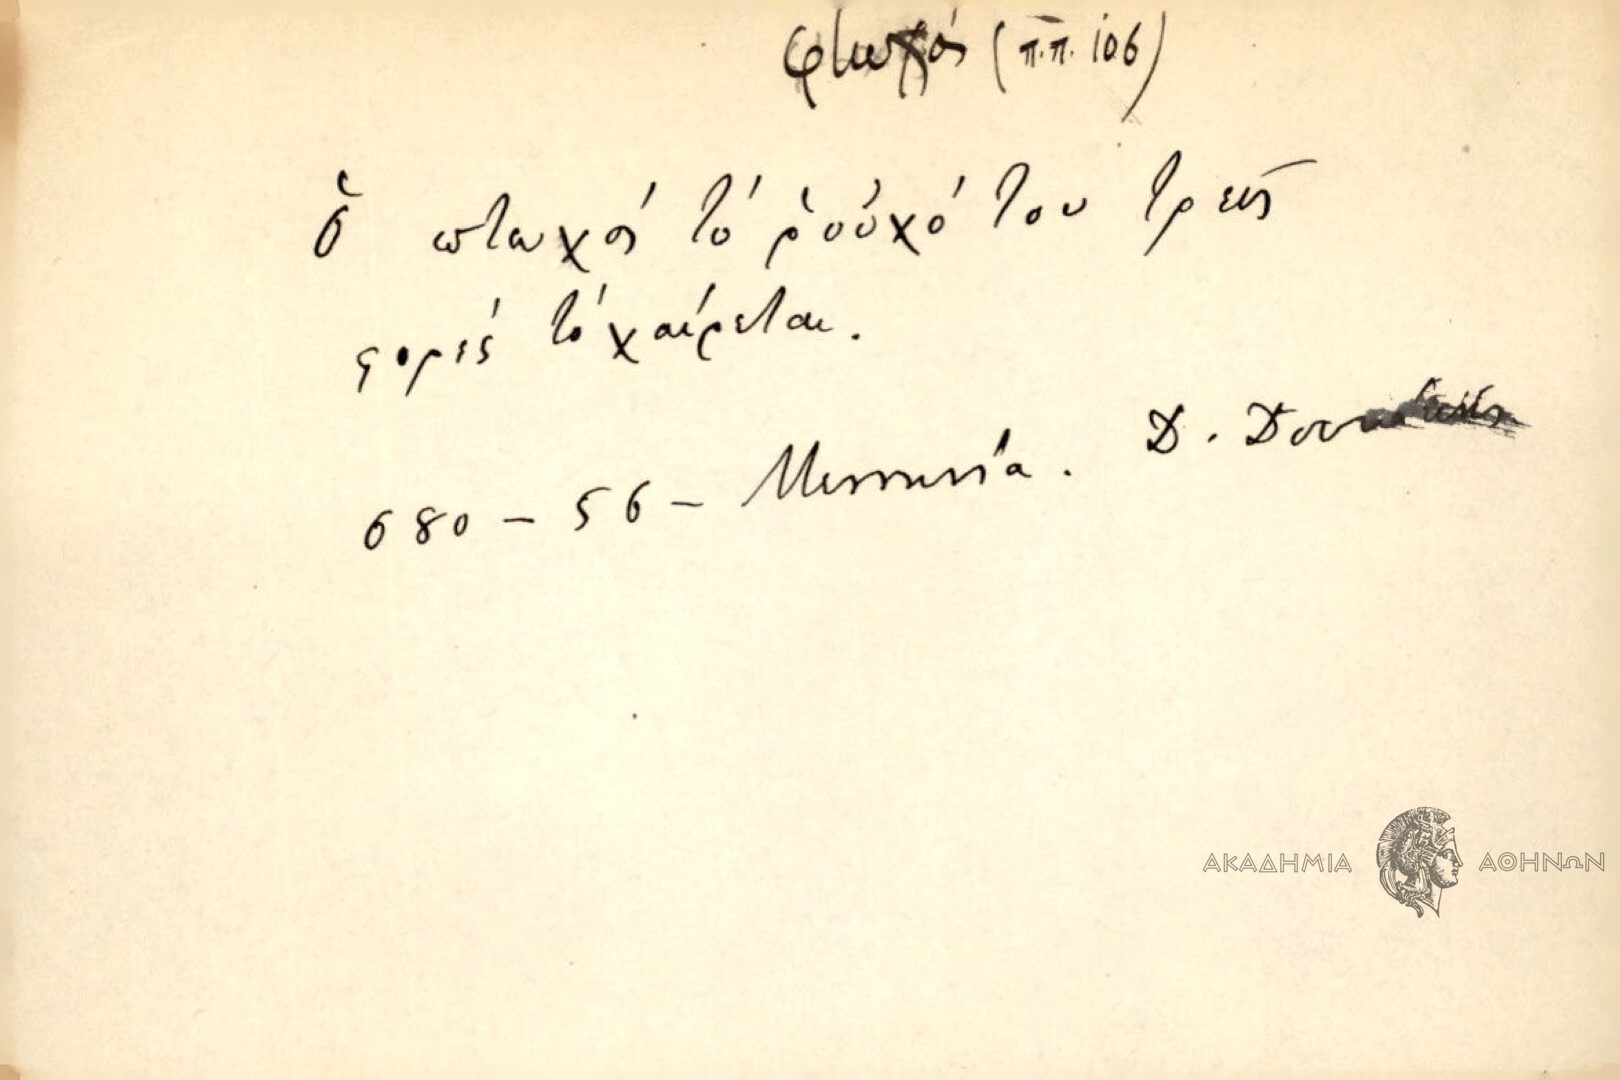 φτωχός (π.π. 106)
Ὁ πτωχός τό ῥοῦχό του τρεῖς
φορές τό χαίρεται.
680 - 56 - Μεσσηνία. Δ.
ΑΚΑΔΗΜΙΑ ΑΘΗΝΩΝ